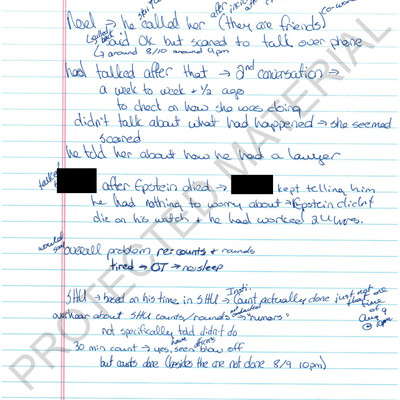 Noel → he called her (they are friends)
said OK but scared to talk over phone
↳ around 8/10 around 9pm
had talked after that → 2nd conversation →
a week to week + 1/2 ago
to check on how she was doing
didn't talk about what had happened → she seemed
scared
he told her about how he had a lawyer
talked
after Epstein died → kept telling him
he had nothing to worry about → Epstein didn't
die on his watch + he had worked 24 hrs.
would say
overall problem re: counts + rounds
tired → OT → no sleep
Insti.
SHU → based on his time in SHU → Count actually done just not
overhear about SHU counts/rounds → "rumors"
not specifically told didn't do
30 min count → yes, seen blow off
but counts done (besides the are not done 8/9 10pm)
PROTECTED MATERIAL